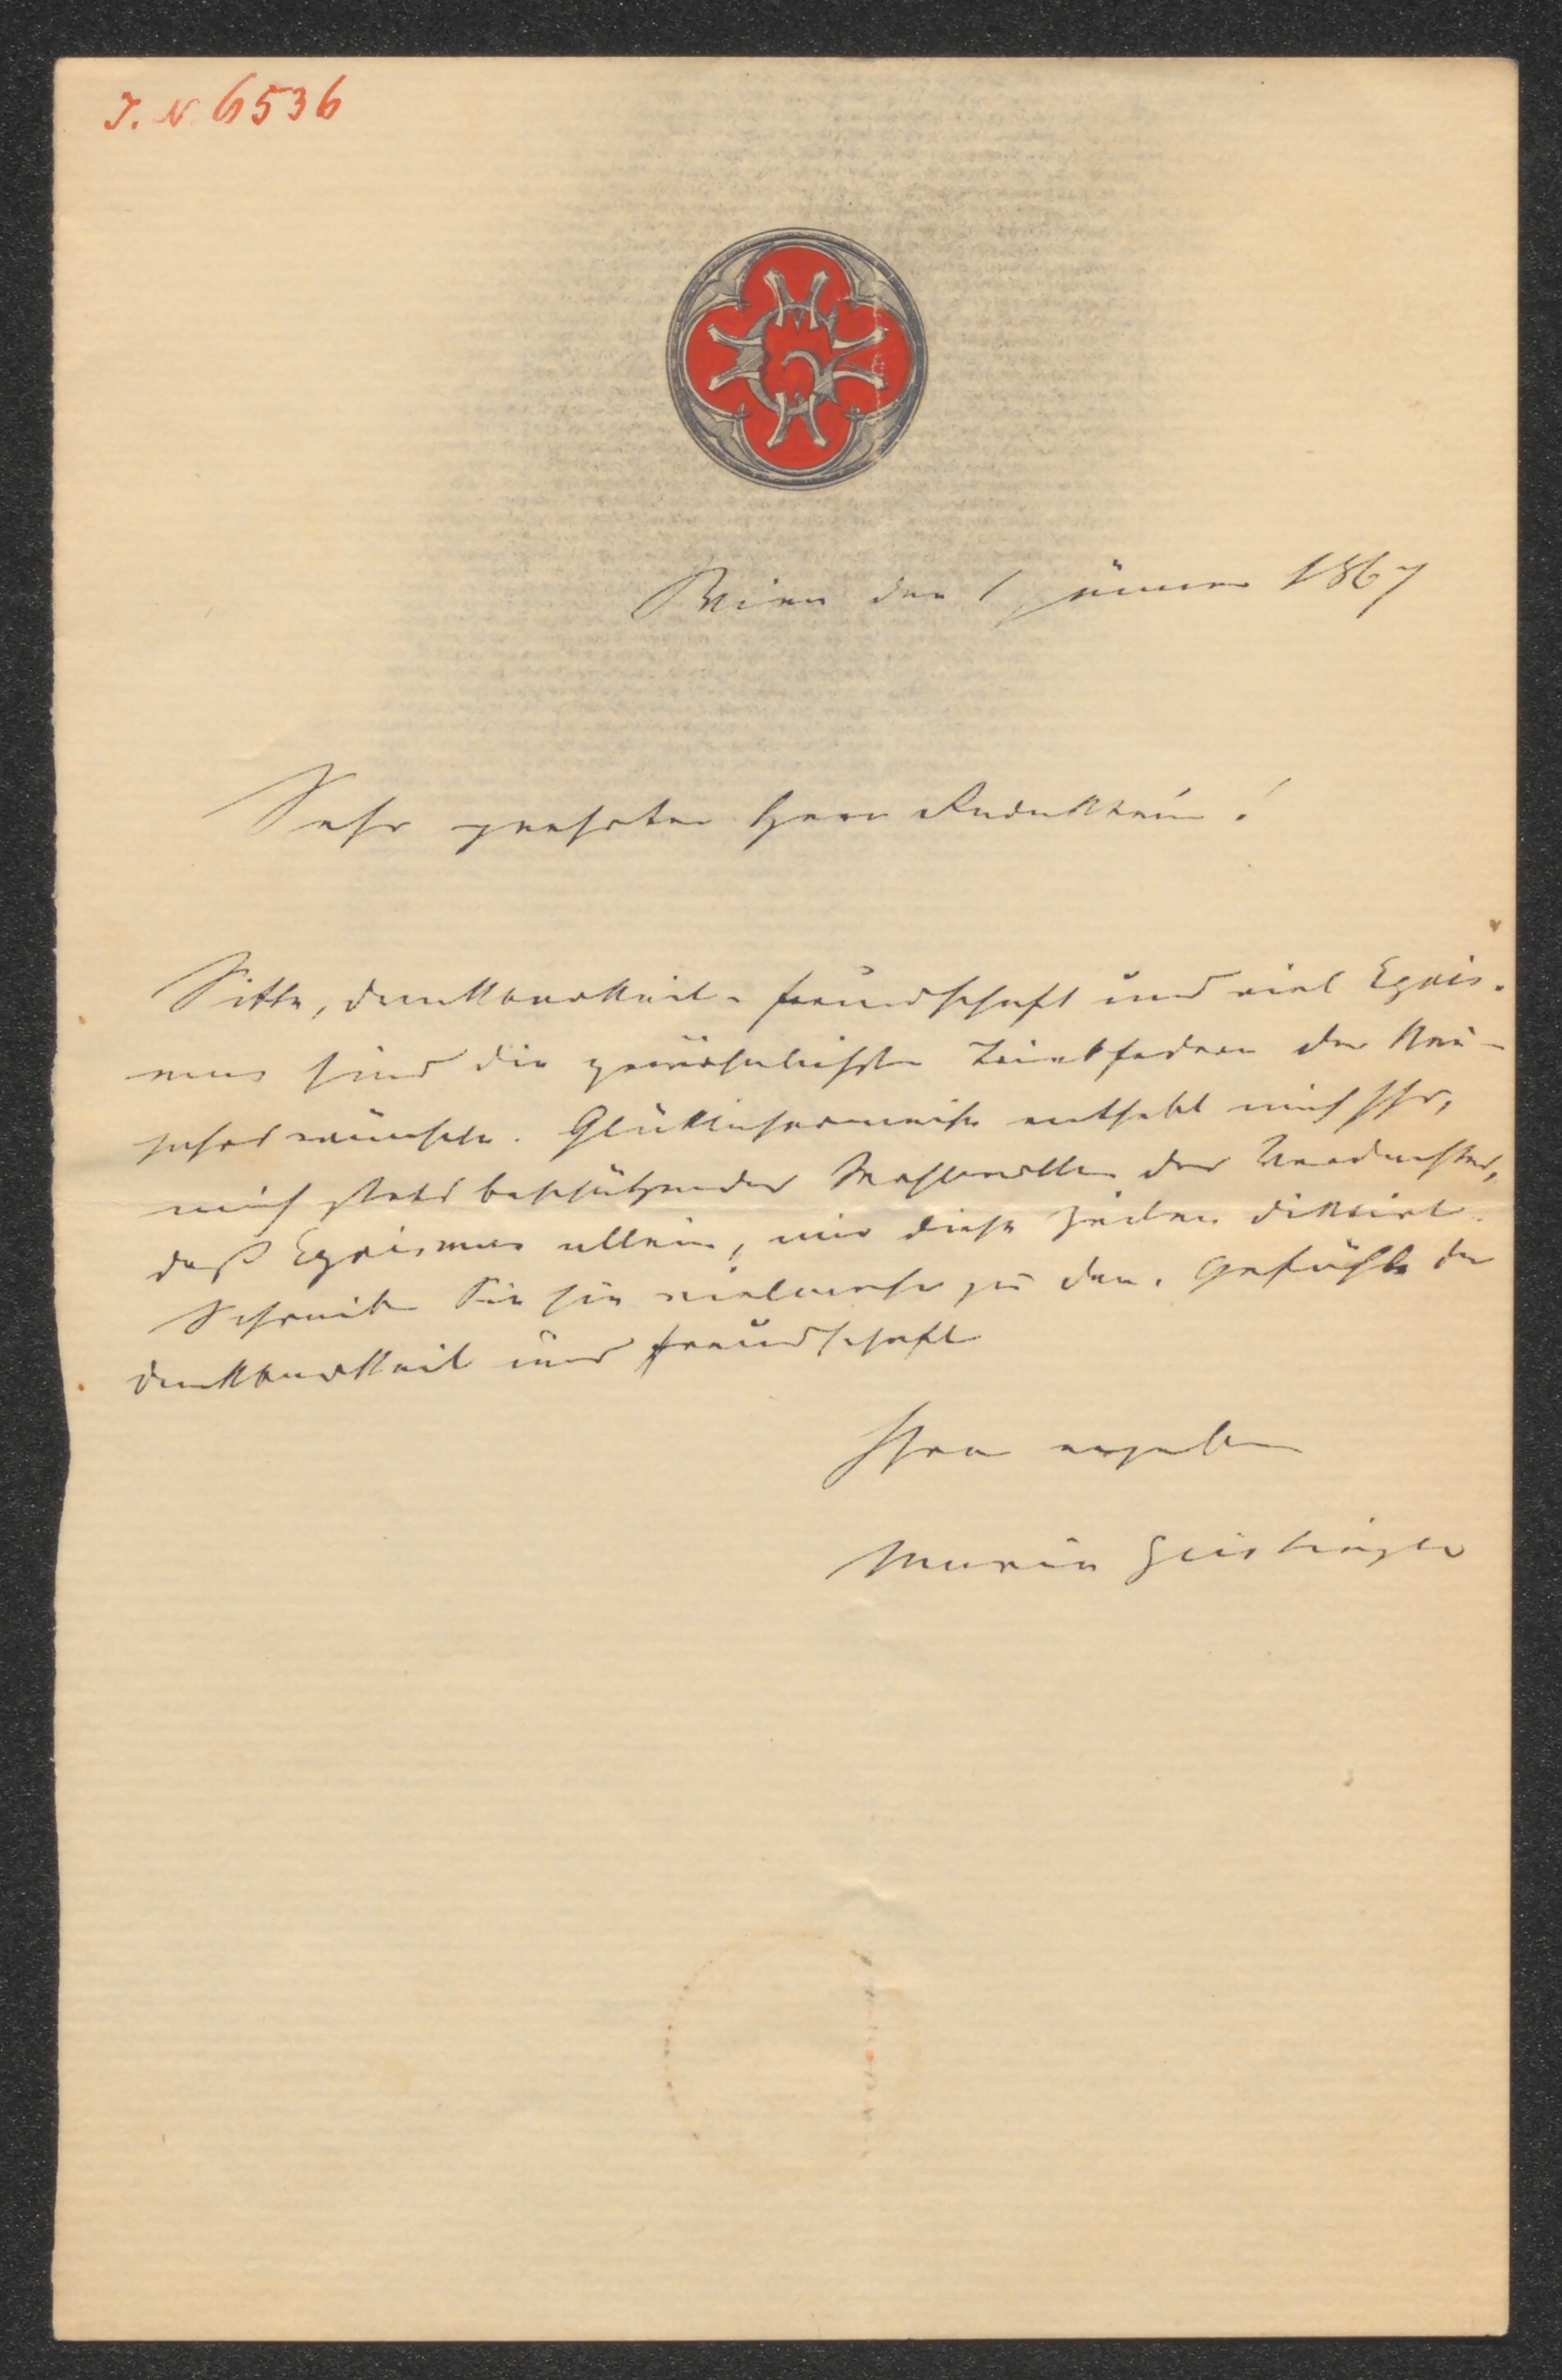 I. N. 6536
Wien den 1 Jänner 1867
Sehr geehrter Herr Redakteur!
Sitte, Dankbarkeit, Freundschaft und viel Egois-
mus sind die gewöhnlichsten Triebfedern der Neu-
jahrswünsche. Glücklicherweise enthebt mich Ihr,
mich stets beschützendes Wohlwollen des Verdachtes,
daß Egoismus allein, mir diese Zeilen diktirt.
Schreiben Sie sie vielmehr zu den, Gefühle der
Dankbarkeit und Freundschaft
Ihrer ergebenen
Marie Geistinger